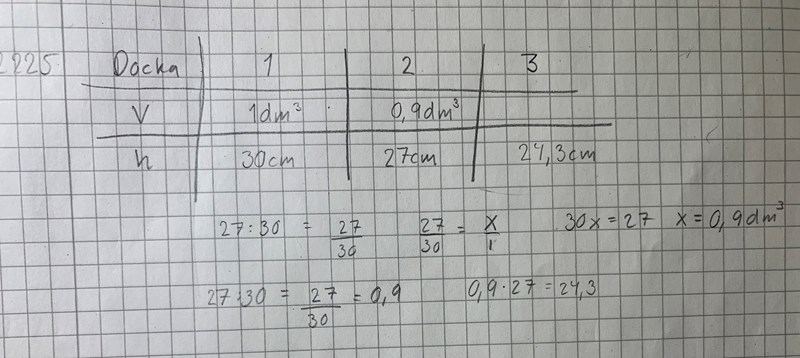 2225 Docka 1 2 3
V 1dm³ 0,9dm³
h 30cm 27cm 24,3cm
27:30 = 27/30 27/30 = x/1 30x = 27 x = 0,9dm³
27:30 = 27/30 = 0,9 0,9·27 = 24,3